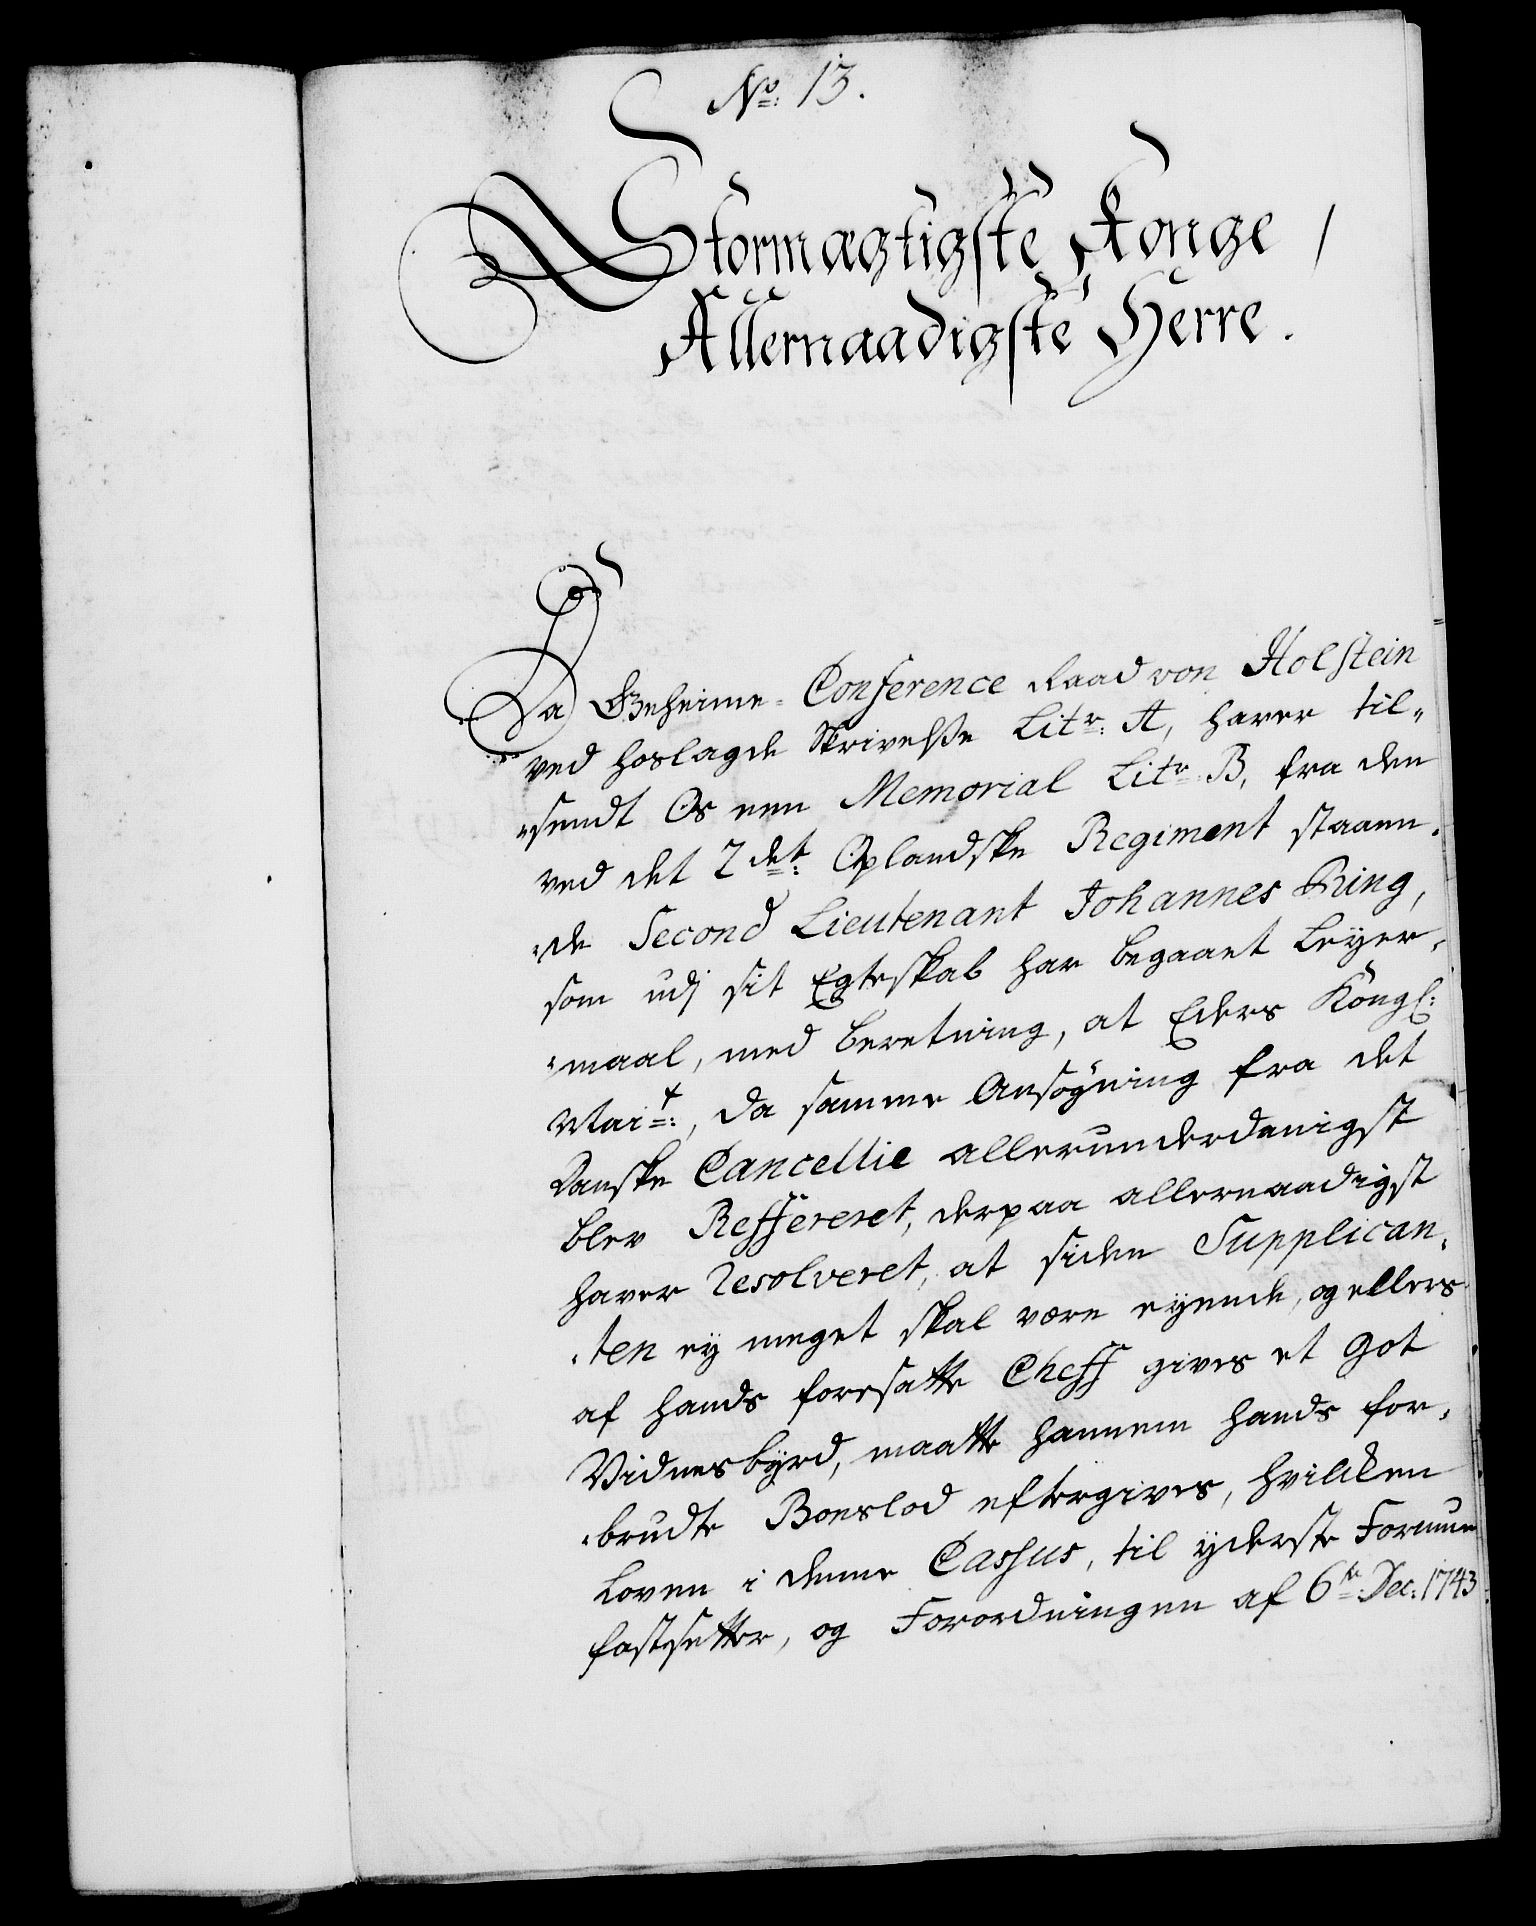 No: 13.
Stormægtigste Konge,
Allernaadigste Herre.
Da Geheime-Conference Raad von Holstein
ved hoslagde Skrivelse Litr: A, haver til-
sendt Os een Memorial Litr: B, fra den
ved det 2det: Oplandske Regiment staaen-
de Second Lieutenant Johannes Ring,
som udj sit Egteskab har begaaet Leÿer-
maal, med beretning, at Eders Kongl:
Mait:, da samme Ansøgning fra det
Danske Cancellie allerunderdanigst
blev Reffereret, derpaa allernaadigst
haver Resolveret, at siden Supplican-
ten eÿ meget skal være eÿende, og ellers
af hands foresatte Cheff gives et Got
Vidnesbÿrd, maatte hannem hands for-
brudte Boeslod eftergives, hvilcken
Loven i denne Cassus, til ÿderste Formue
fastsetter, og Forordningen af 6te: Dec: 1743